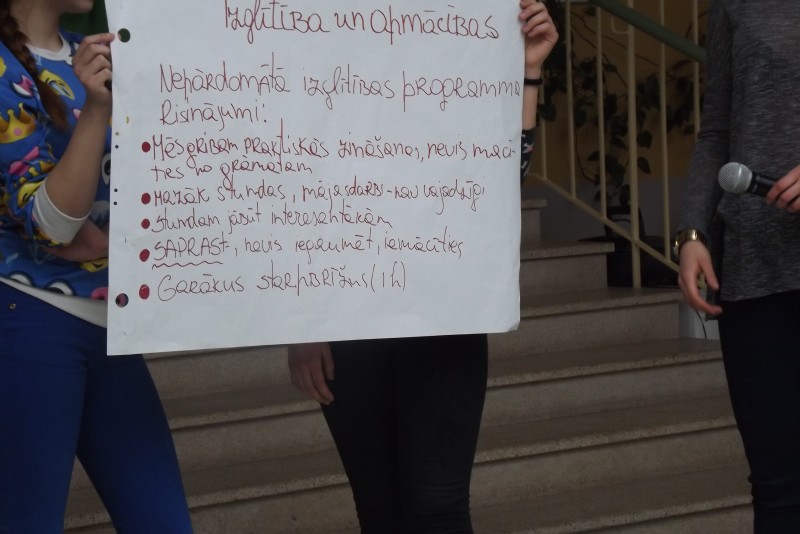 Izglītība un apmācības
Nepārdomātā izglītības programma
Risinājumi:
Mēs gribam praktiskās zināšanas, nevis mācī-
ties no grāmatam
Mazāk stundas, mājasdarbi-nav vajadzīgi
Stundām jābūt interesantākām
SAPRASt, nevis iegaumēt, iemācīties
Garākus starpbrīžus (1h)